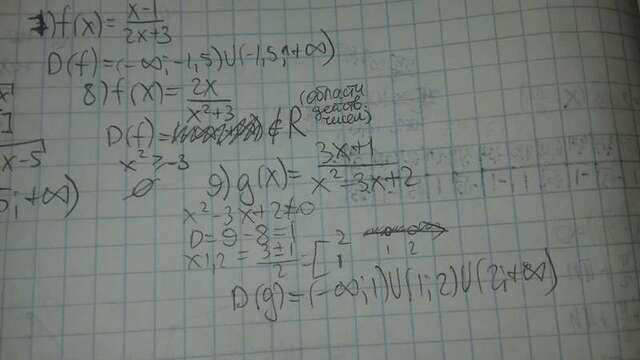 x-5
; +∞)
7) f(x) = x-1 / 2x+3
D(f) = (-∞; -1,5) ∪ (-1,5; +∞)
8) f(x) = 2x / x²+3
D(f) = R (область действ. чисел)
x² ≥ -3
∅
9) g(x) = 3x+1 / x²-3x+2
x²-3x+2≠0
D=9-8=1
x1,2 = 3±1 / 2 = [ 2 1
1 2
D(g) = (-∞; 1) ∪ (1; 2) ∪ (2; +∞)